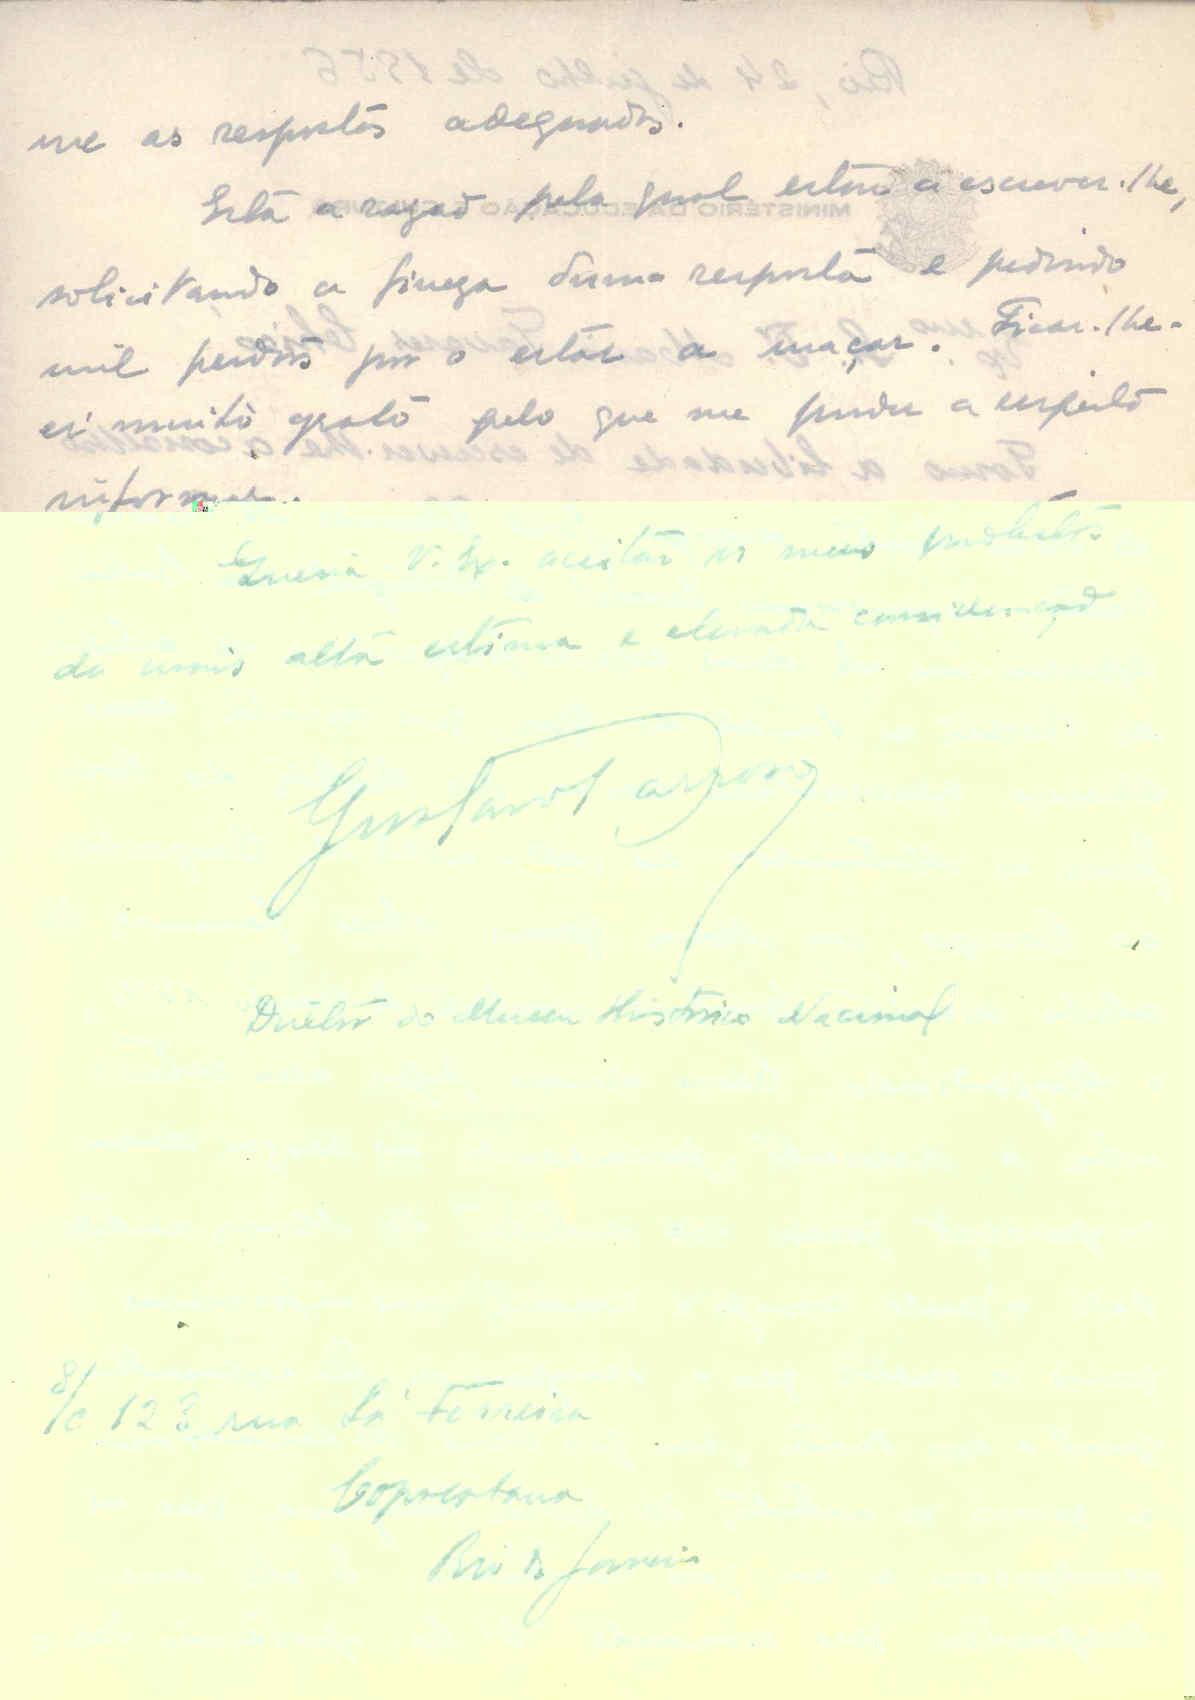 me as respostas adequadas.
Esta a razão pela qual estou a escrever-lhe,
solicitando a fineza duma resposta e pedindo
mil perdões por o estar a maçar. Ficar-lhe-
ei muito grato pelo que me puder a respeito
informar.
Queira V. Ex. aceitar os meus protestos
da mais alta estima e elevada consideração
Gustavo Barroso
Diretor do Museu Historico Nacional
S/c 123 rua Sá Ferreira
Copacabana
Rio de Janeiro